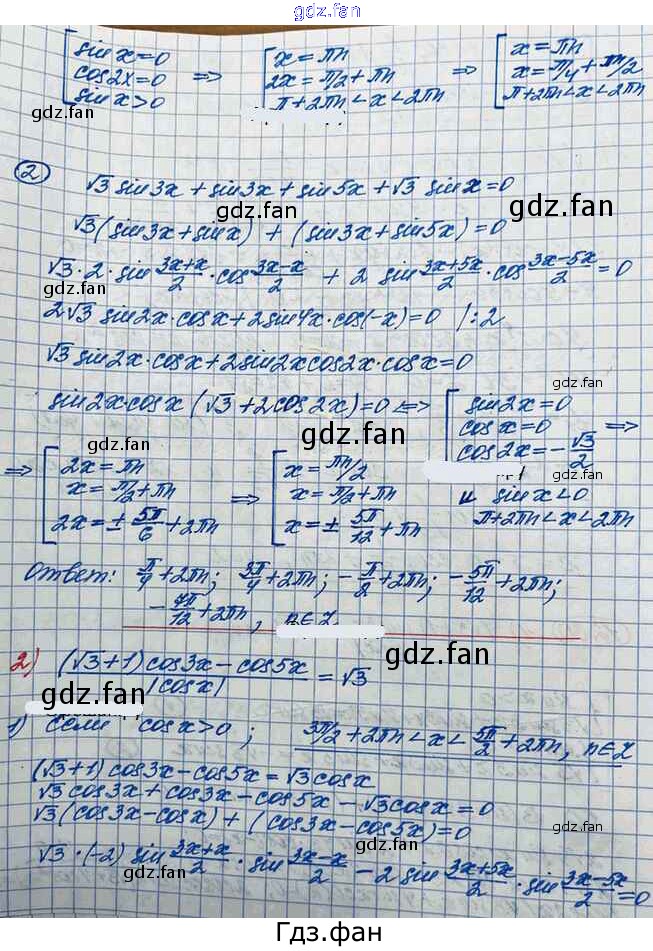 gdz.fan
[ sin x = 0 [ x = πn [ x = πn
cos 2x = 0 => 2x = π/2 + πn => x = π/4 + πn/2
sin x > 0 π + 2πn < x < 2πn π + 2πn < x < 2πn
gdz.fan gdz.fan gdz.fan
②
√3 sin 3x + sin 3x + sin 5x + √3 sin x = 0
gdz.fan gdz.fan
√3 (sin 3x + sin x) + (sin 3x + sin 5x) = 0
√3 · 2 · sin (3x+x)/2 · cos (3x-x)/2 + 2 sin (3x+5x)/2 · cos (3x-5x)/2 = 0
gdz.fan gdz.fan
2√3 sin 2x · cos x + 2 sin 4x · cos(-x) = 0 /:2
√3 sin 2x · cos x + 2 sin 2x cos 2x · cos x = 0
gdz.fan
sin 2x · cos x (√3 + 2 cos 2x) = 0 <=> [ sin 2x = 0
cos x = 0 =>
cos 2x = - √3/2
gdz.fan gdz.fan gdz.fan
=> [ 2x = πn => [ x = πn/2 и sin x < 0
x = π/2 + πn x = π/2 + πn π + 2πn < x < 2πn
2x = ± 5π/6 + 2πn x = ± 5π/12 + πn
gdz.fan gdz.fan
ответ: π/4 + 2πn; 3π/4 + 2πn; - π/2 + 2πn; - 5π/12 + 2πn;
- 7π/12 + 2πn, n ∈ Z
gdz.fan gdz.fan
2) ((√3+1) cos 3x - cos 5x)/|cos x| = √3
gdz.fan gdz.fan
1) если cos x > 0; 3π/2 + 2πn < x < 5π/2 + 2πn, n ∈ Z
(√3+1) cos 3x - cos 5x = √3 cos x
√3 cos 3x + cos 3x - cos 5x - √3 cos x = 0
√3 (cos 3x - cos x) + (cos 3x - cos 5x) = 0
gdz.fan gdz.fan
√3 · (-2) sin (3x+x)/2 · sin (3x-x)/2 - 2 sin (3x+5x)/2 · sin (3x-5x)/2 = 0
gdz.fan gdz.fan
Гдз.фан